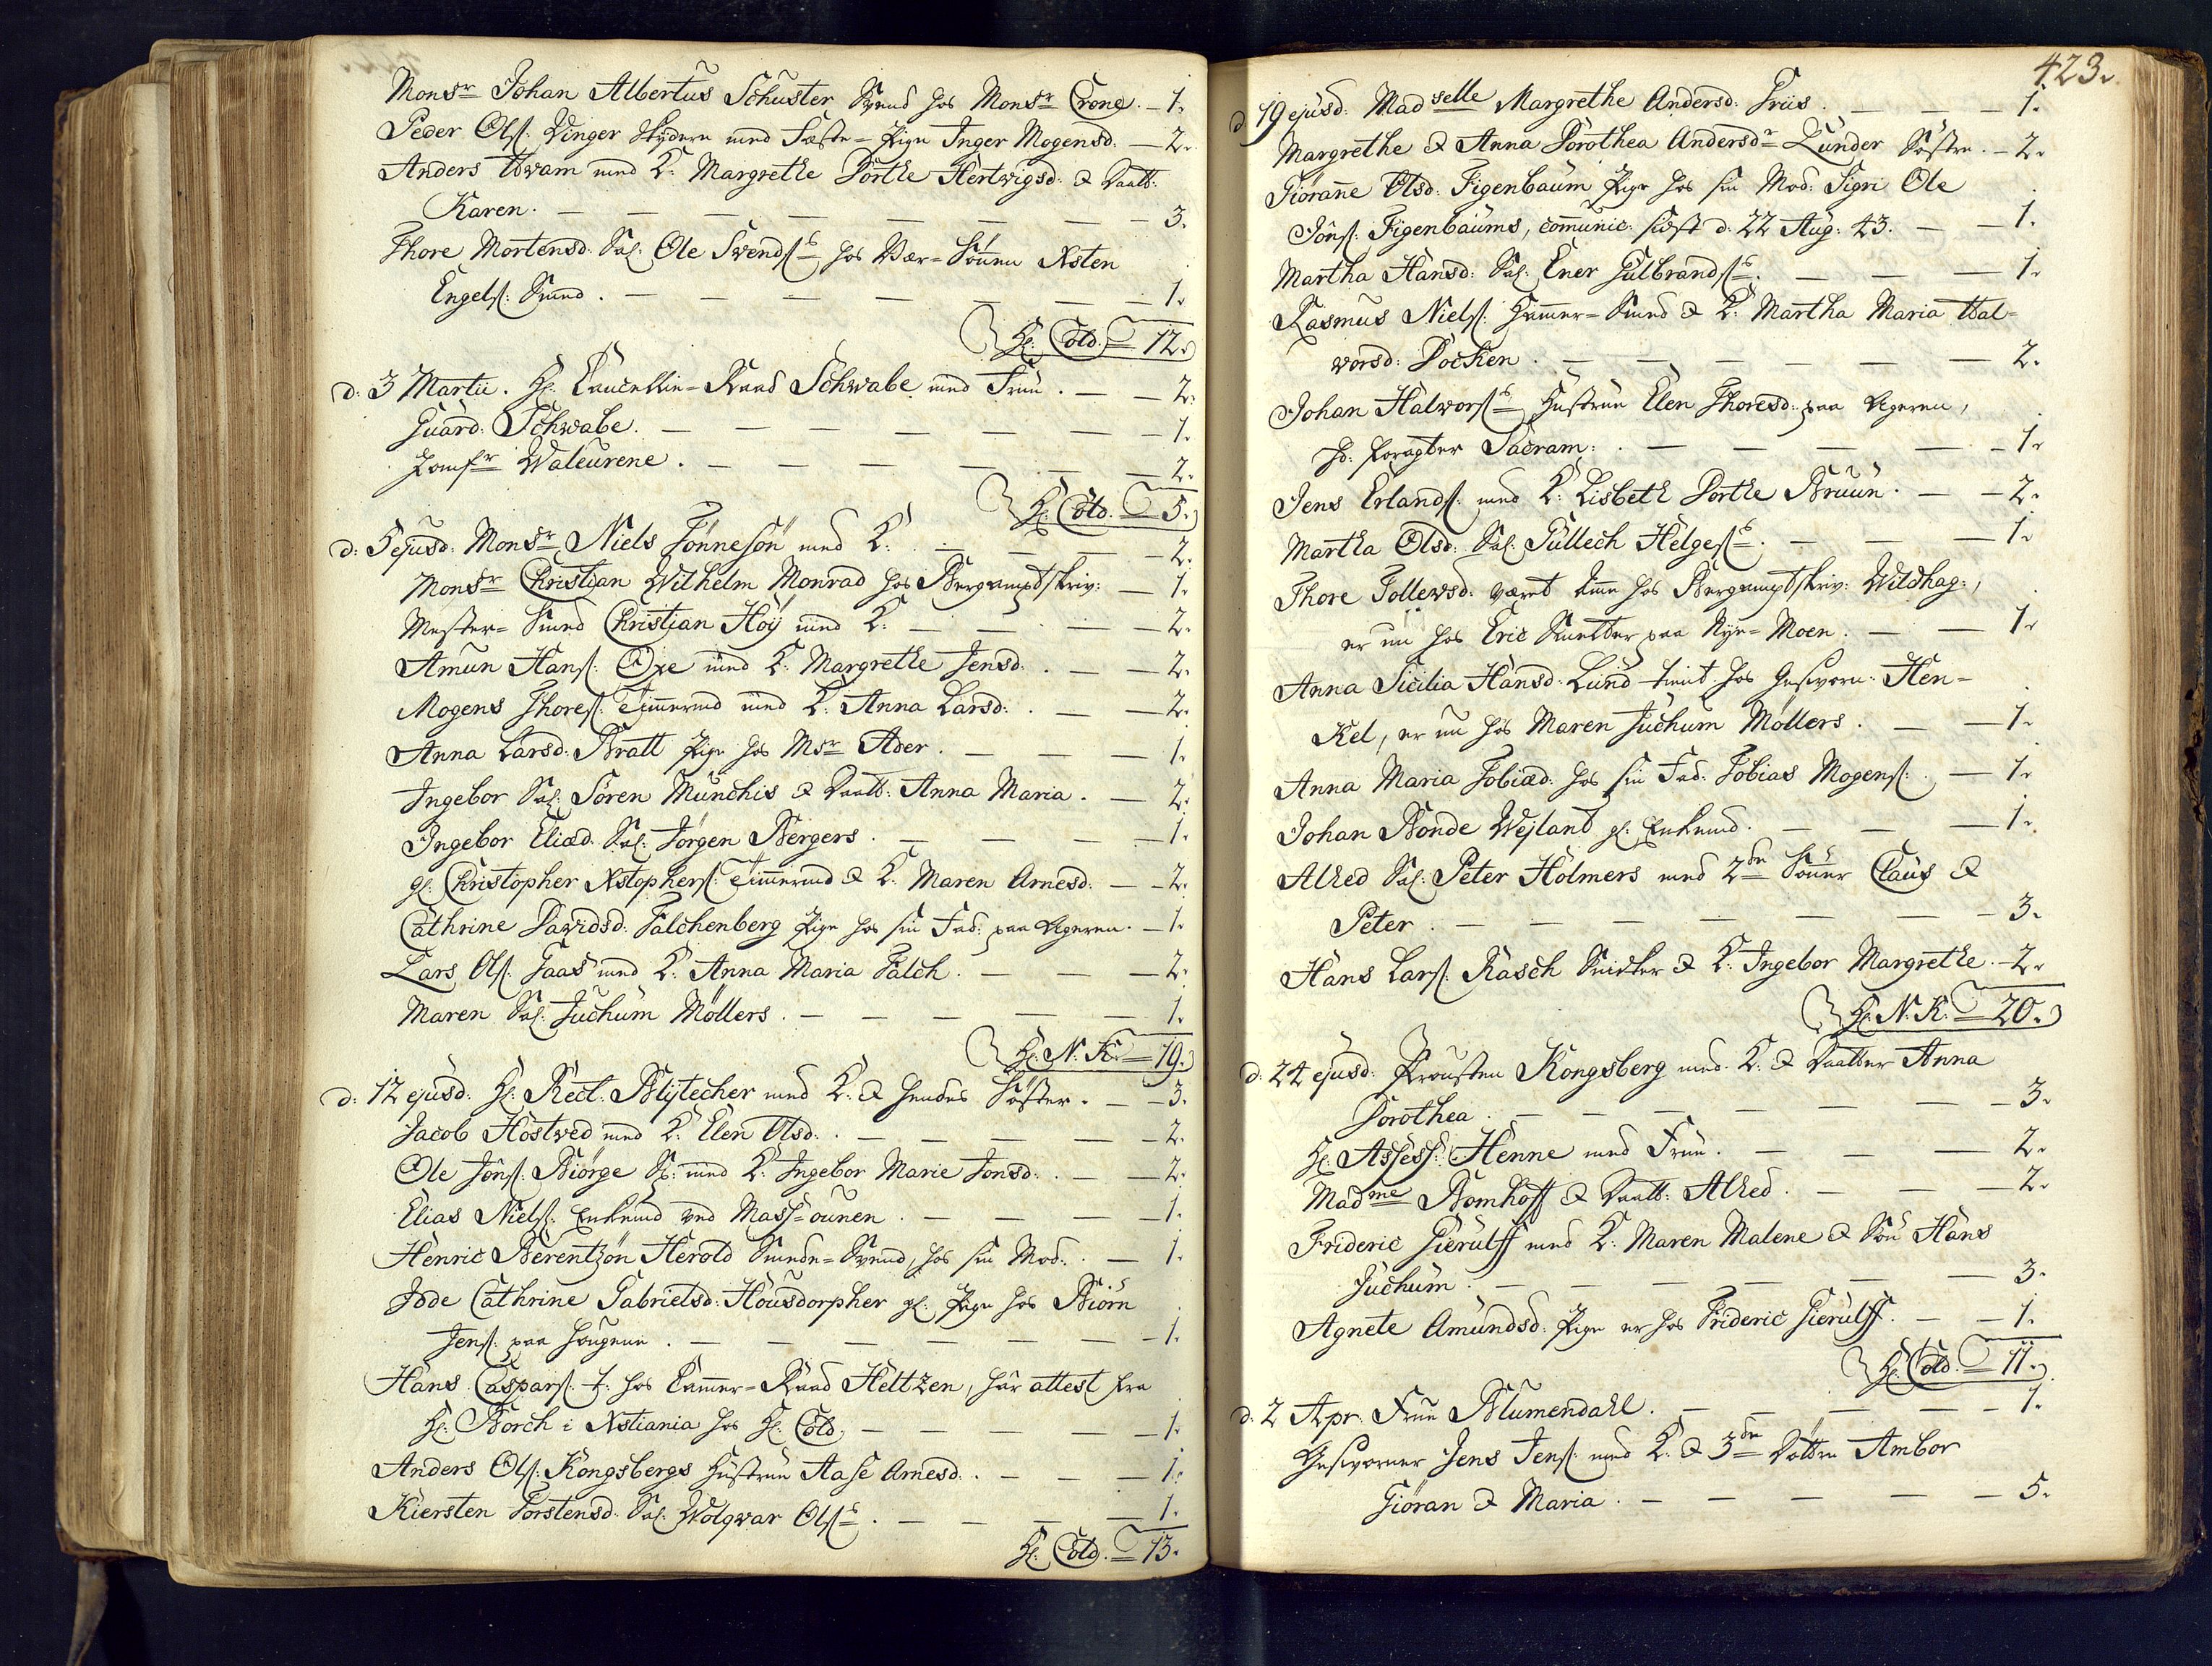 Monsr Johan Albertus Schuster Svend hos Monsr Crone. — 1.
Peder Ols: Vinger Skydern med Fæste-Pige Inger Mogensd. — 2.
Anders Hvam med K: Margrethe Dorthe Hertwigsd: & Daatt:
Karen. — 3.
Thore Mortensd. Sal: Ole Svends: hos Vær-Sönnen Xsten
Engels: Smed. — 1.
Hr: Cold. = 12.
d: 3 Martii. Hr: Cancellie-Raad Schwabe med Frue. — 2.
Guard: Schwabe. — 1.
Jomfr Waleurene. — 2.
Hr: Cold. = 5.
d: 5 ejusd: Monsr Niels Tönnesön med K: — 2.
Monsr Christian Wilhelm Monrad hos Bergamptskriv: — 1.
Mester-Smed Christian Höy med K: — 2.
Amun Hans: Oxe med K: Margrethe Jensd. — 2.
Mogens Thores: Timmermd med K: Anna Larsd: — 2.
Anna Larsd: Bratt Pige hos Msr Ader. — 1.
Ingebor Sal: Sören Munchis & Daatt: Anna Maria. — 2.
Ingebor Eliæd. Sal: Jörgen Bergers. — 1.
gl: Christopher Xstophers: Timmermd & K: Maren Arnesd. — 2.
Cathrine Davidsd. Falchenberg Pige hos sin Fad: paa Ageren. — 1.
Lars Ols: Gaas med K: Anna Maria Falch. — 2.
Maren Sal: Juchum Möllers. — 1.
Hr: N: K: = 19.
d: 12 ejusd: Hr: Rect. Blytecher med K: & hendes Söster. — 3.
Jacob Höstved med K: Elen Olsd: — 2.
Ole Jöns: Biörge med K: Ingebor Marie Jonsd: — 2.
Elias Niels: Enkemd ved Mass-ounen. — 1.
Henric Berentzön Herold Smede-Svend, hos sin Mod: — 1.
Jode Cathrine Gabrielsd: Housdorpher gl: Pige hos Biörn
Jens: paa Hougene. — 1.
Hans Caspars: t: hos Cammer-Raad Heltzen, har attest fra
Hr: Borch i Xstiania hos Hr: Cold. — 1.
Anders Ols: Kongsbergs Hustrue Aase Arnesd: — 1.
Kiersten Torstensd. Sal: Wolqvar Ols: — 1.
Hr: Cold. = 13.
423.
d: 19 ejusd: Madselle Margrethe Andersd. Friis. — 1.
Margrethe & Anna Dorothea Andersdr Lunder Söstre. — 2.
Giöranne Olsd: Figenbaum Pige hos sin Mod: Sigri Ole
Jöns: Figenbaums, communic: sidst d: 22 Aug: 43. — 1.
Martha Hansd: Sal: Ener Gulbrands: — 1.
Rasmus Niels: Hammer-Smed & K: Martha Maria Hal-
vorsd: Docken. — 2.
Johan Halvors: Hustrue Elen Thoresd: paa Ageren,
foragter Sacram: — 1.
Jens Erlands: med K: Lisbeth Dorthe Bruun. — 2.
Martha Olsd: Sal: Tullech Helges: — 1.
Thore Tollevsd. været Amme hos Bergamptskriv: Wildhag:,
er nu hos Eric Snedker paa Nye-Moen. — 1.
Anna Sicilia Hansd: Lund tient hos Gesvorn: Hen-
kel, er nu hos Maren Juchum Möllers. — 1.
Anna Maria Tobiæd: hos sin Fad: Tobias Mogens: — 1.
Johan Bonde Wejland gl: Enkemd. — 1.
Alhed Sal: Peter Holmers med 2de Sönner Claus &
Peter. — 3.
Hans Lars: Rasch Snidker & K: Ingebor Margrethe. — 2.
Hr: N. K: = 20.
d: 24 ejusd: Prousten Kongsberg med K: & Daatter Anna
Dorothea. — 3.
Hr: Assess: Henne med Frue. — 2.
Madme Bomhoff & Daatt: Alhed. — 2.
Frideric Gierulff med K: Maren Malene & Sön Hans
Juchum. — 3.
Agnete Amundsd: Pige er hos Frideric Gierulff. — 1.
Hr: Cold. = 11.
d: 2 Apr: Frue Blumendahl. — 1.
Gesvorner Jens Jens: med K: & 3de Döttre Ambor
Giöran & Maria. — 5.